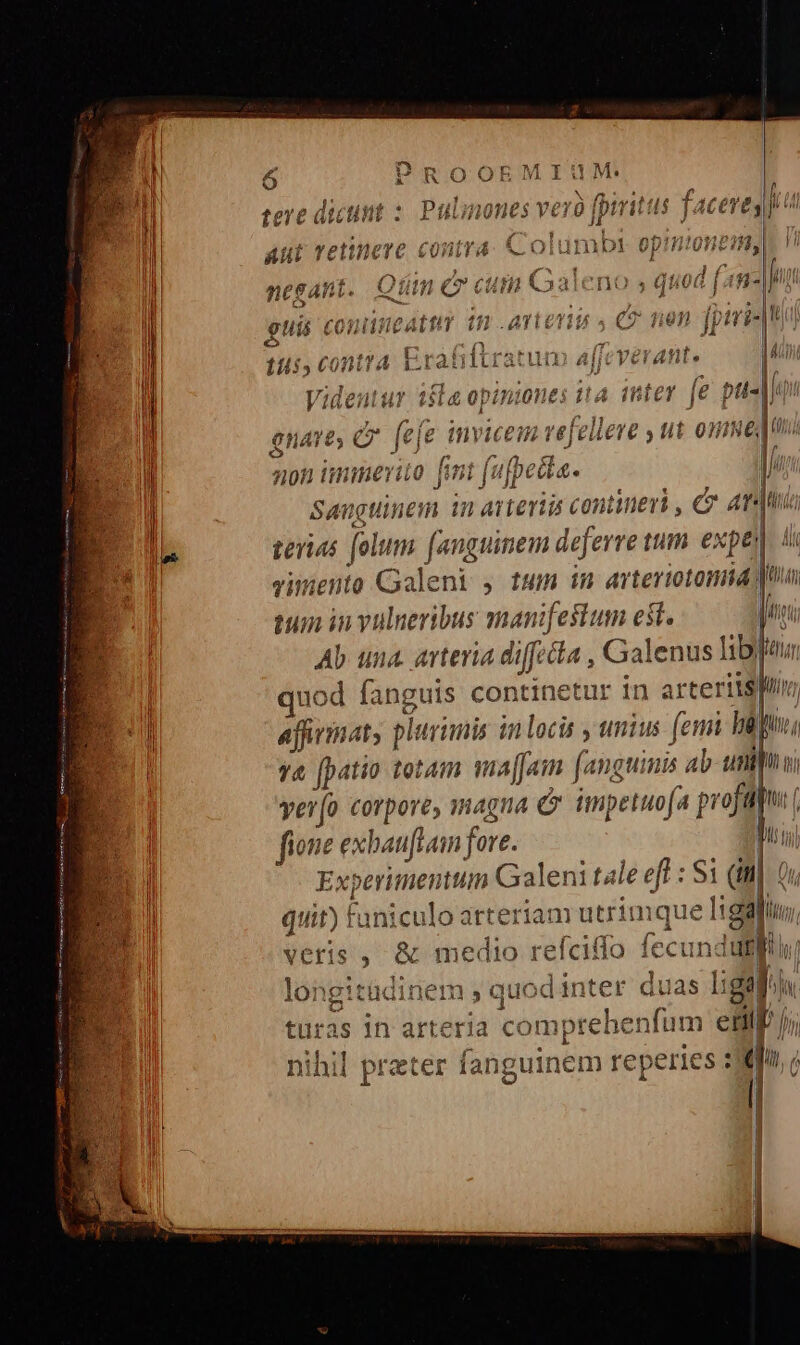 6 PROOEMIUM.
tere dicunt : Pulmones verò ſpiritus facere,
aut retinere contra Columbi opinionem,
negant. Quin & cum Galeno , quod ſan-
guis contineatur in arteriis , & non ſpiri-
tus, contra Eraſiſtratum aſſeverant.
Videntur iſta opiniones ita inter ſe pu-
gnare, & ſeſe invicem refellere , ut omnes
non immerito ſint ſuſpecta.
Sanguinem in arteriis contineri , & ar-
terias ſolum ſanguinem deferre tum expe-
rimento Galeni , tum in arteriotomia
tum in vulneribus manifeſtum eſt.
Ab una arteria diſſecta , Galenus lib.
quod ſanguis continetur in arteriis
affirmat, plurimis in locis , unius ſemi ho-
ra ſpatio totam maſſam ſanguinis ab uni-
verſo corpore, magna & impetuoſa profu-
ſione exhauſtam fore.
Experimentum Galeni tale eſt : Si (in-
quit) funiculo arteriam utrimque liga-
veris , & medio reſciſſo ſecundum
longitudinem , quod inter duas liga-
turas in arteria comprehenſum erit
nihil præter ſanguinem reperies :